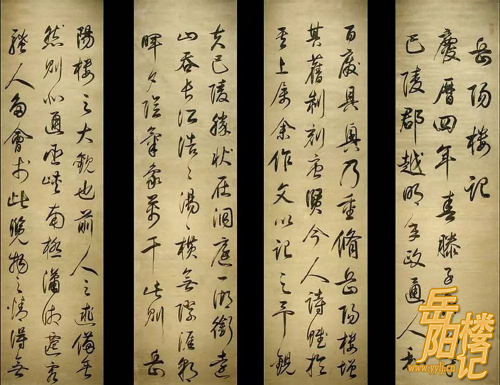 岳陽樓記
慶曆四年春滕子
巴陵郡越明年政通人和
百廢具興乃重脩岳陽樓增
其舊制刻唐賢今人詩賦於
其上屬余作文以記之予觀
夫巴陵勝狀在洞庭一湖銜遠
山吞長江浩〻湯〻橫無際涯朝
暉夕陰氣象萬千此則岳
陽樓之大觀也前人之述備矣
然則北通巫峽南極瀟湘遷客
騷人多會于此覽物之情得無
岳阳楼记